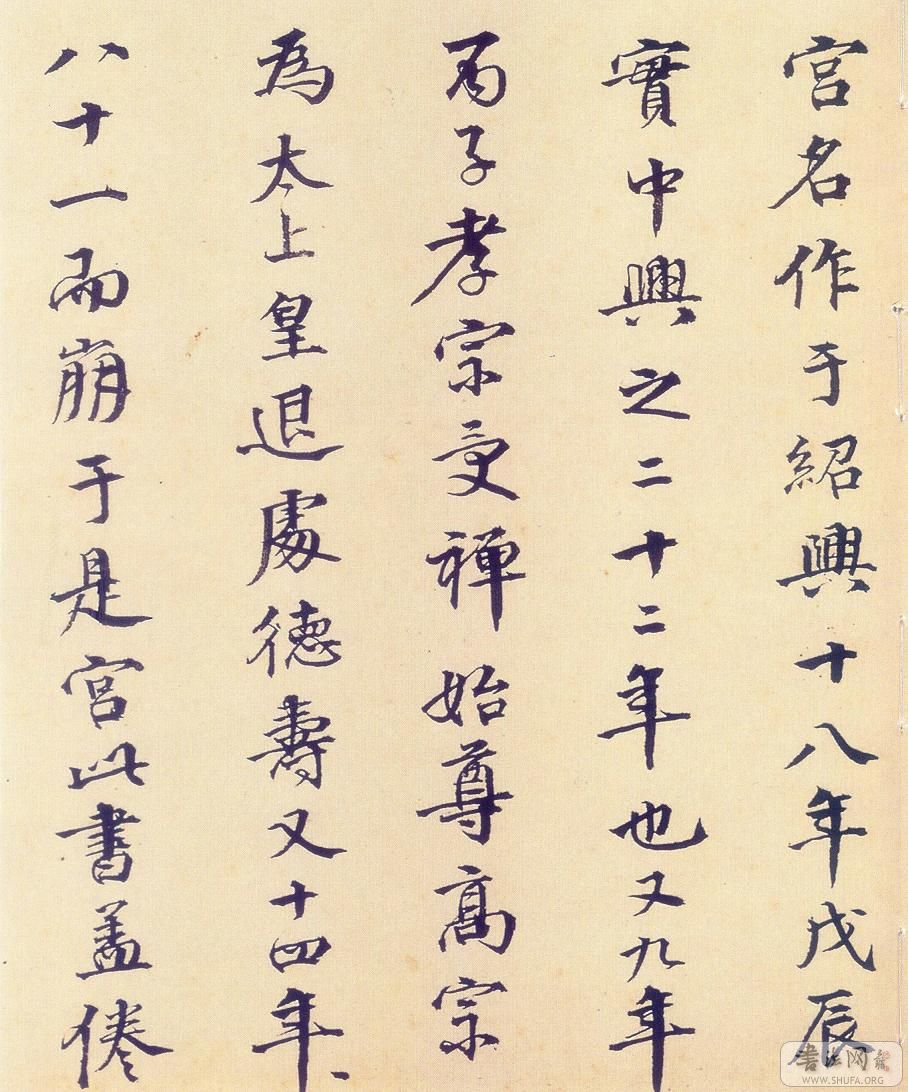 宫名作于紹興十八年戊辰
實中興之二十二年也又九年
丙子孝宗受禪始尊高宗
為太上皇退處德壽又十四年
八十一而崩于是宫此書盖倦
書法网
WWW.SHUFA.ORG